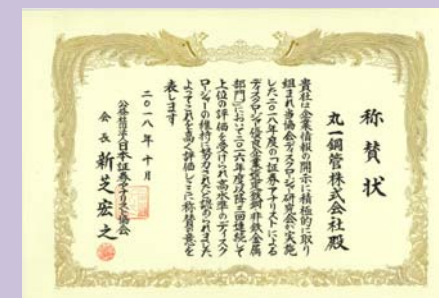 称賛状
丸一鋼管株式会社殿
貴社は企業情報の開示に積極的に取り
組まれ当協会ディスクロージャー研究会が実施
した二〇一八年度の「証券アナリストによる
ディスクロージャー優良企業選定鉄鋼・非鉄金属
部門」において二〇一六年度以降三回連続して
上位の評価を受けられ高水準のディスク
ロージャーの維持に努力されたと認められました
よってこれを高く評価しここに称賛の意を
表します
二〇一八年十月
公益社団法人日本証券アナリスト協会
会長 新芝宏之